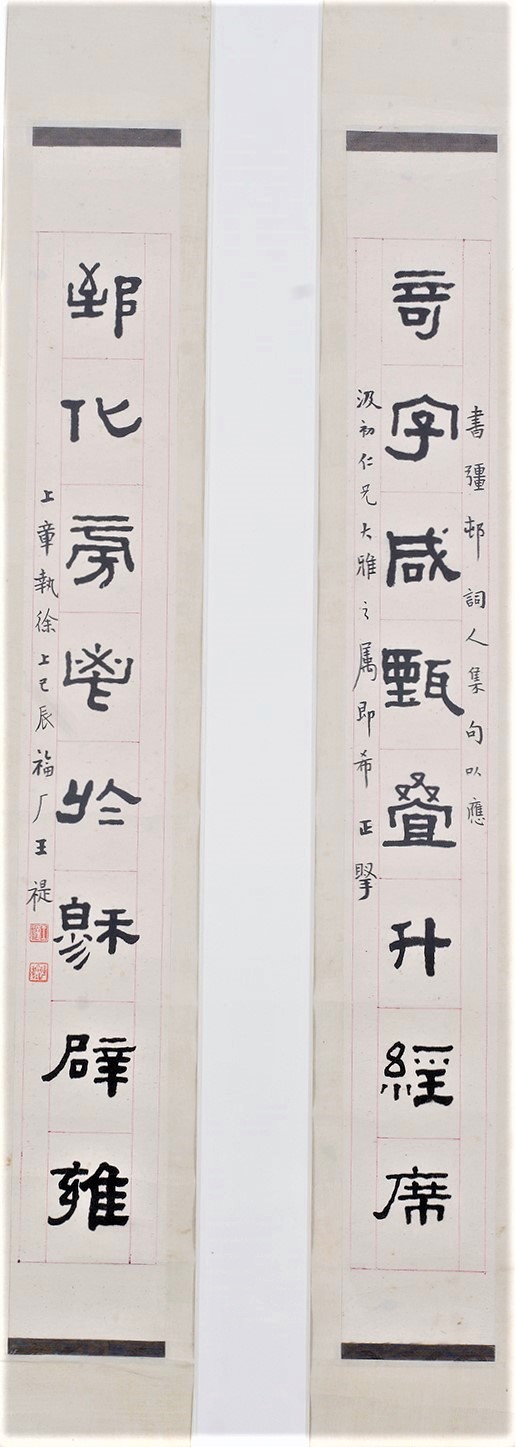 書彊邨詞人集句以應
竒字咸甄叠升經席
汲初仁兄大雅之属即希正掔
郅化旁鬯於穆辟雍
上章執徐上巳辰福厂王禔